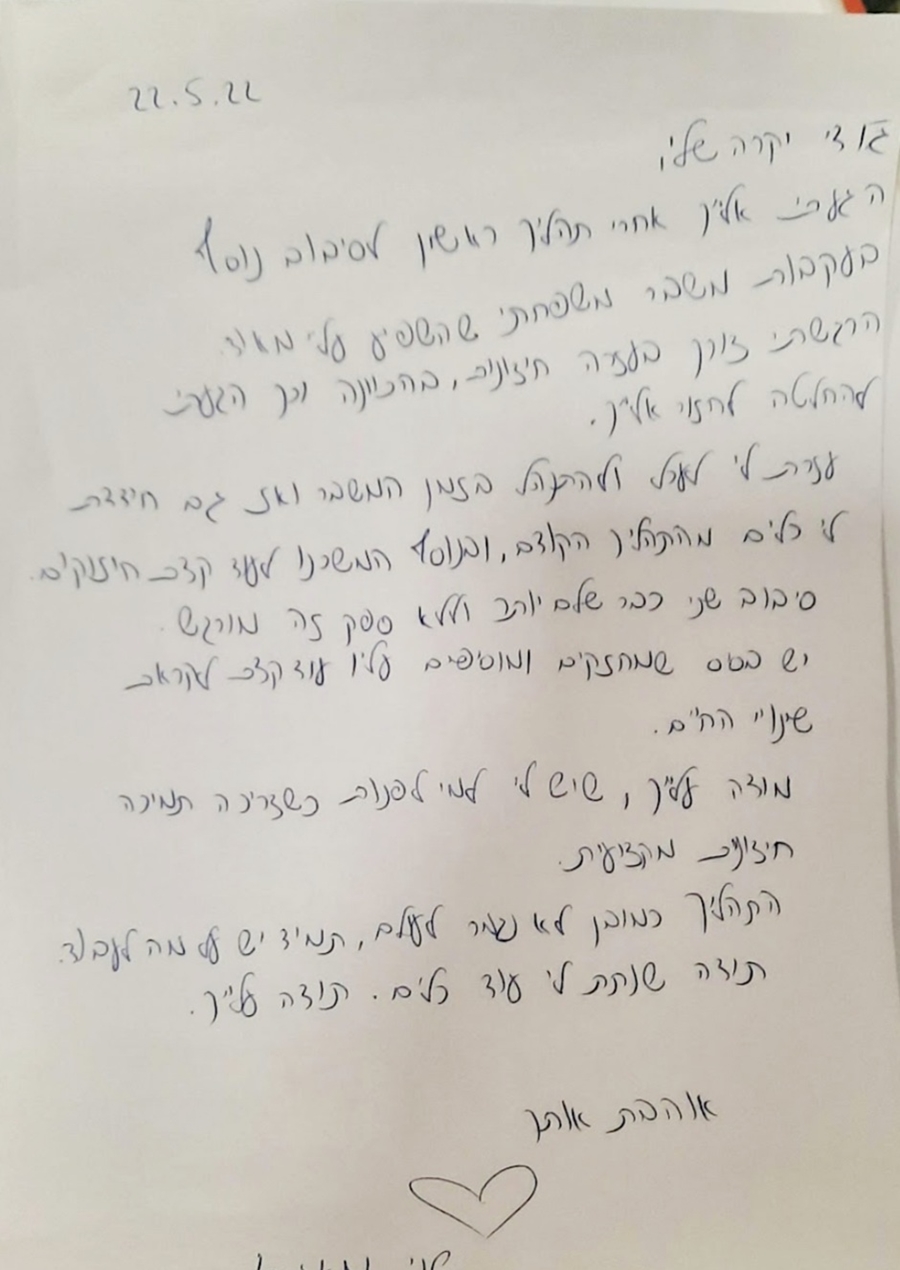 22.5.22
ג'ודי יקרה שלי,
הגעתי אלייך אחרי תהליך ראשון לסיבוב נוסף
בעקבות משבר משפחתי שהשפיע עליי מאוד.
הרגשתי צורך בעזרה חיצונית, בהכוונה וכך הגעתי
להחלטה לחזור אלייך.
עזרת לי לערל ולהתנהל בזמן המשבר ואז גם חידדת
לי כלים מהתהליך הקודם, ובנוסף המשכנו לעוד קצת חיזוקים.
סיבוב שני כבר שלם יותר וללא ספק זה מורגש.
יש בסיס שמחזקים ומוסיפים עליו עוד קצת לקראת
שינויי החיים.
מודה עלייך, שיש לי למי לפנות כשצריכה תמיכה
חיצונית מקצועית.
התהליך כמובן לא נגמר לעולם, תמיד יש על מה לעבוד.
תודה שנתת לי עוד כלים. תודה עלייך.
אוהבת אותך